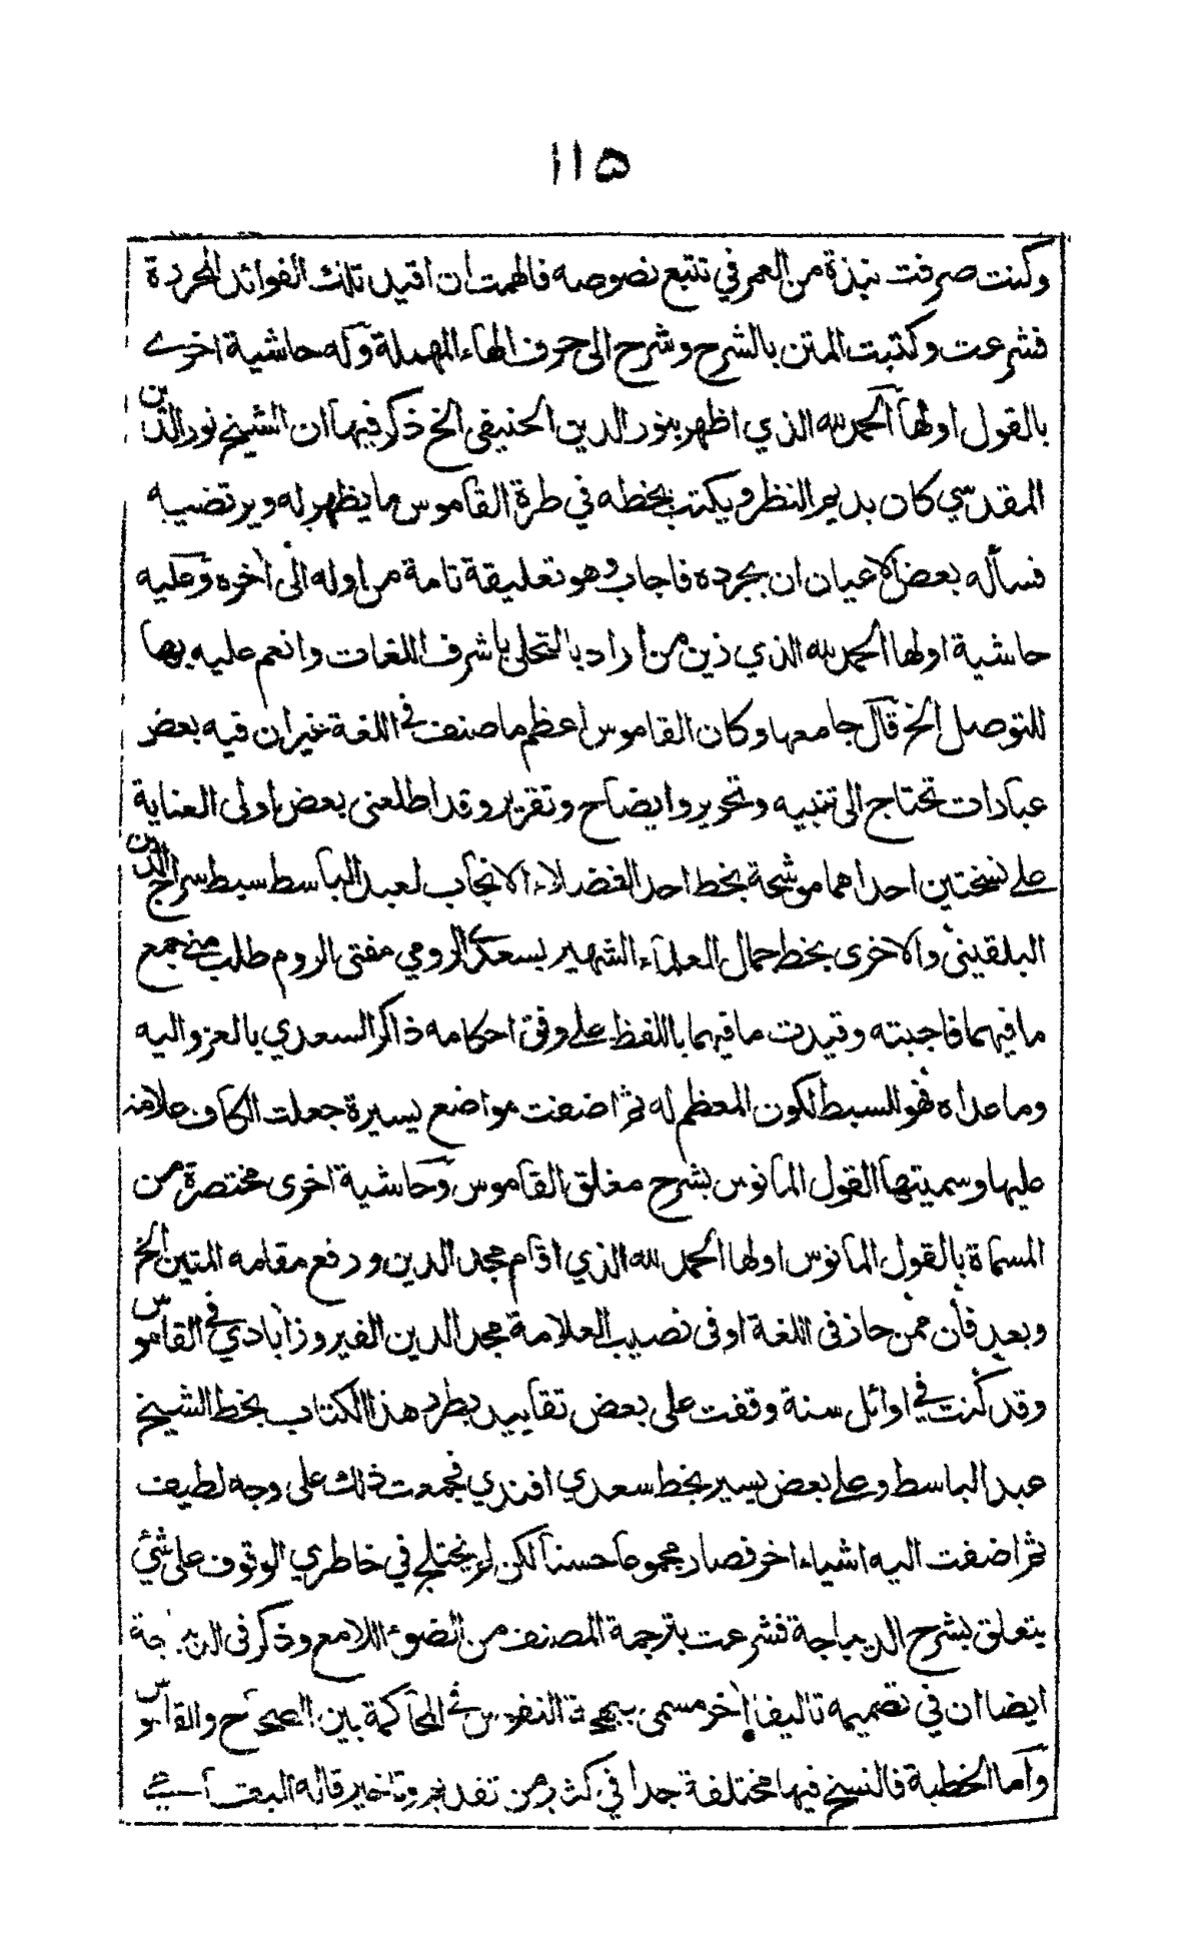 ١١٥
وكنت صرفت نبذة من العمر في تتبع نصوصه فالهمت ان اقيد تلك الفوائد المجردة
فشرعت وكتبت المتن بالشرح وشرح الى حرف الحاء المهملة وله حاشية اخرى
بالقول اولها الحمد لله الذي اظهر بنور الدين الحنيفى الخ ذكر فيها ان الشيخ نور الدين
المقدسي كان بديم النظر ويكتب بخطه في طرة القاموس ما يظهر له ويرتضيه
فسأله بعض الاعيان ان يجرده فاجاب وهو تعليقة تامة من اوله الى اخره وعليه
حاشية اولها الحمد لله الذي زين من أراد بالتحلى باشرف اللغات وانعم عليه بها
للتوصل الخ قال جامعها وكان القاموس اعظم ما صنف في اللغة غير ان فيه بعض
عبارات تحتاج الى تنبيه وتحرير وايضاح وتقرير وقد اطلعنى بعض اولى العناية
على نسختين احداهما موشحة بخط احد الفضلاء الانجاب لعبد الباسط سبط سراج الدين
البلقينى والاخرى بخط جمال العلماء الشهير بسعدى الرومي مفتى الروم طلب منى جمع
ما فيهما فاجبته وقيدت ما فيهما باللفظ على وفق احكامه ذاكر السعدي بالعزو اليه
وما عداه فهو السبط لكون المعظم له ثم اضفت مواضع يسيرة جعلت الكاف علامة
عليها وسميتها القول المانوس بشرح مغلق القاموس وحاشية اخرى مختصرة من
المسماة بالقول المانوس اولها الحمد لله الذي اقام مجد الدين ورفع مقامه المتين الخ
وبعد فأن ممن حاز فى اللغة اوفى نصيب العلامة مجد الدين الفيروزابادي في القاموس
وقد كنت في اوائل سنة وقفت على بعض تقاييد بطرر هذا الكتاب بخط الشيخ
عبد الباسط وعلى بعض يسير بخط سعدي افندي فجمعت ذلك على وجه لطيف
ثم اضفت اليه اشياء اخر فصار مجموعا حسنا لكن لم يختلج في خاطري الوقوف على شئ
يتعلق بشرح الديباجة فشرعت بترجمة المصنف من الضوء اللامع وذكر فى الديباجة
ايضا ان في تصميمه تاليفا اخر مسمى ببهجة النفوس في المحاكمة بين الصحاح والقاموس
وأما الخطبة فالنسخ فيها مختلفة جدا في كثير من تقديم وتاخير قاله